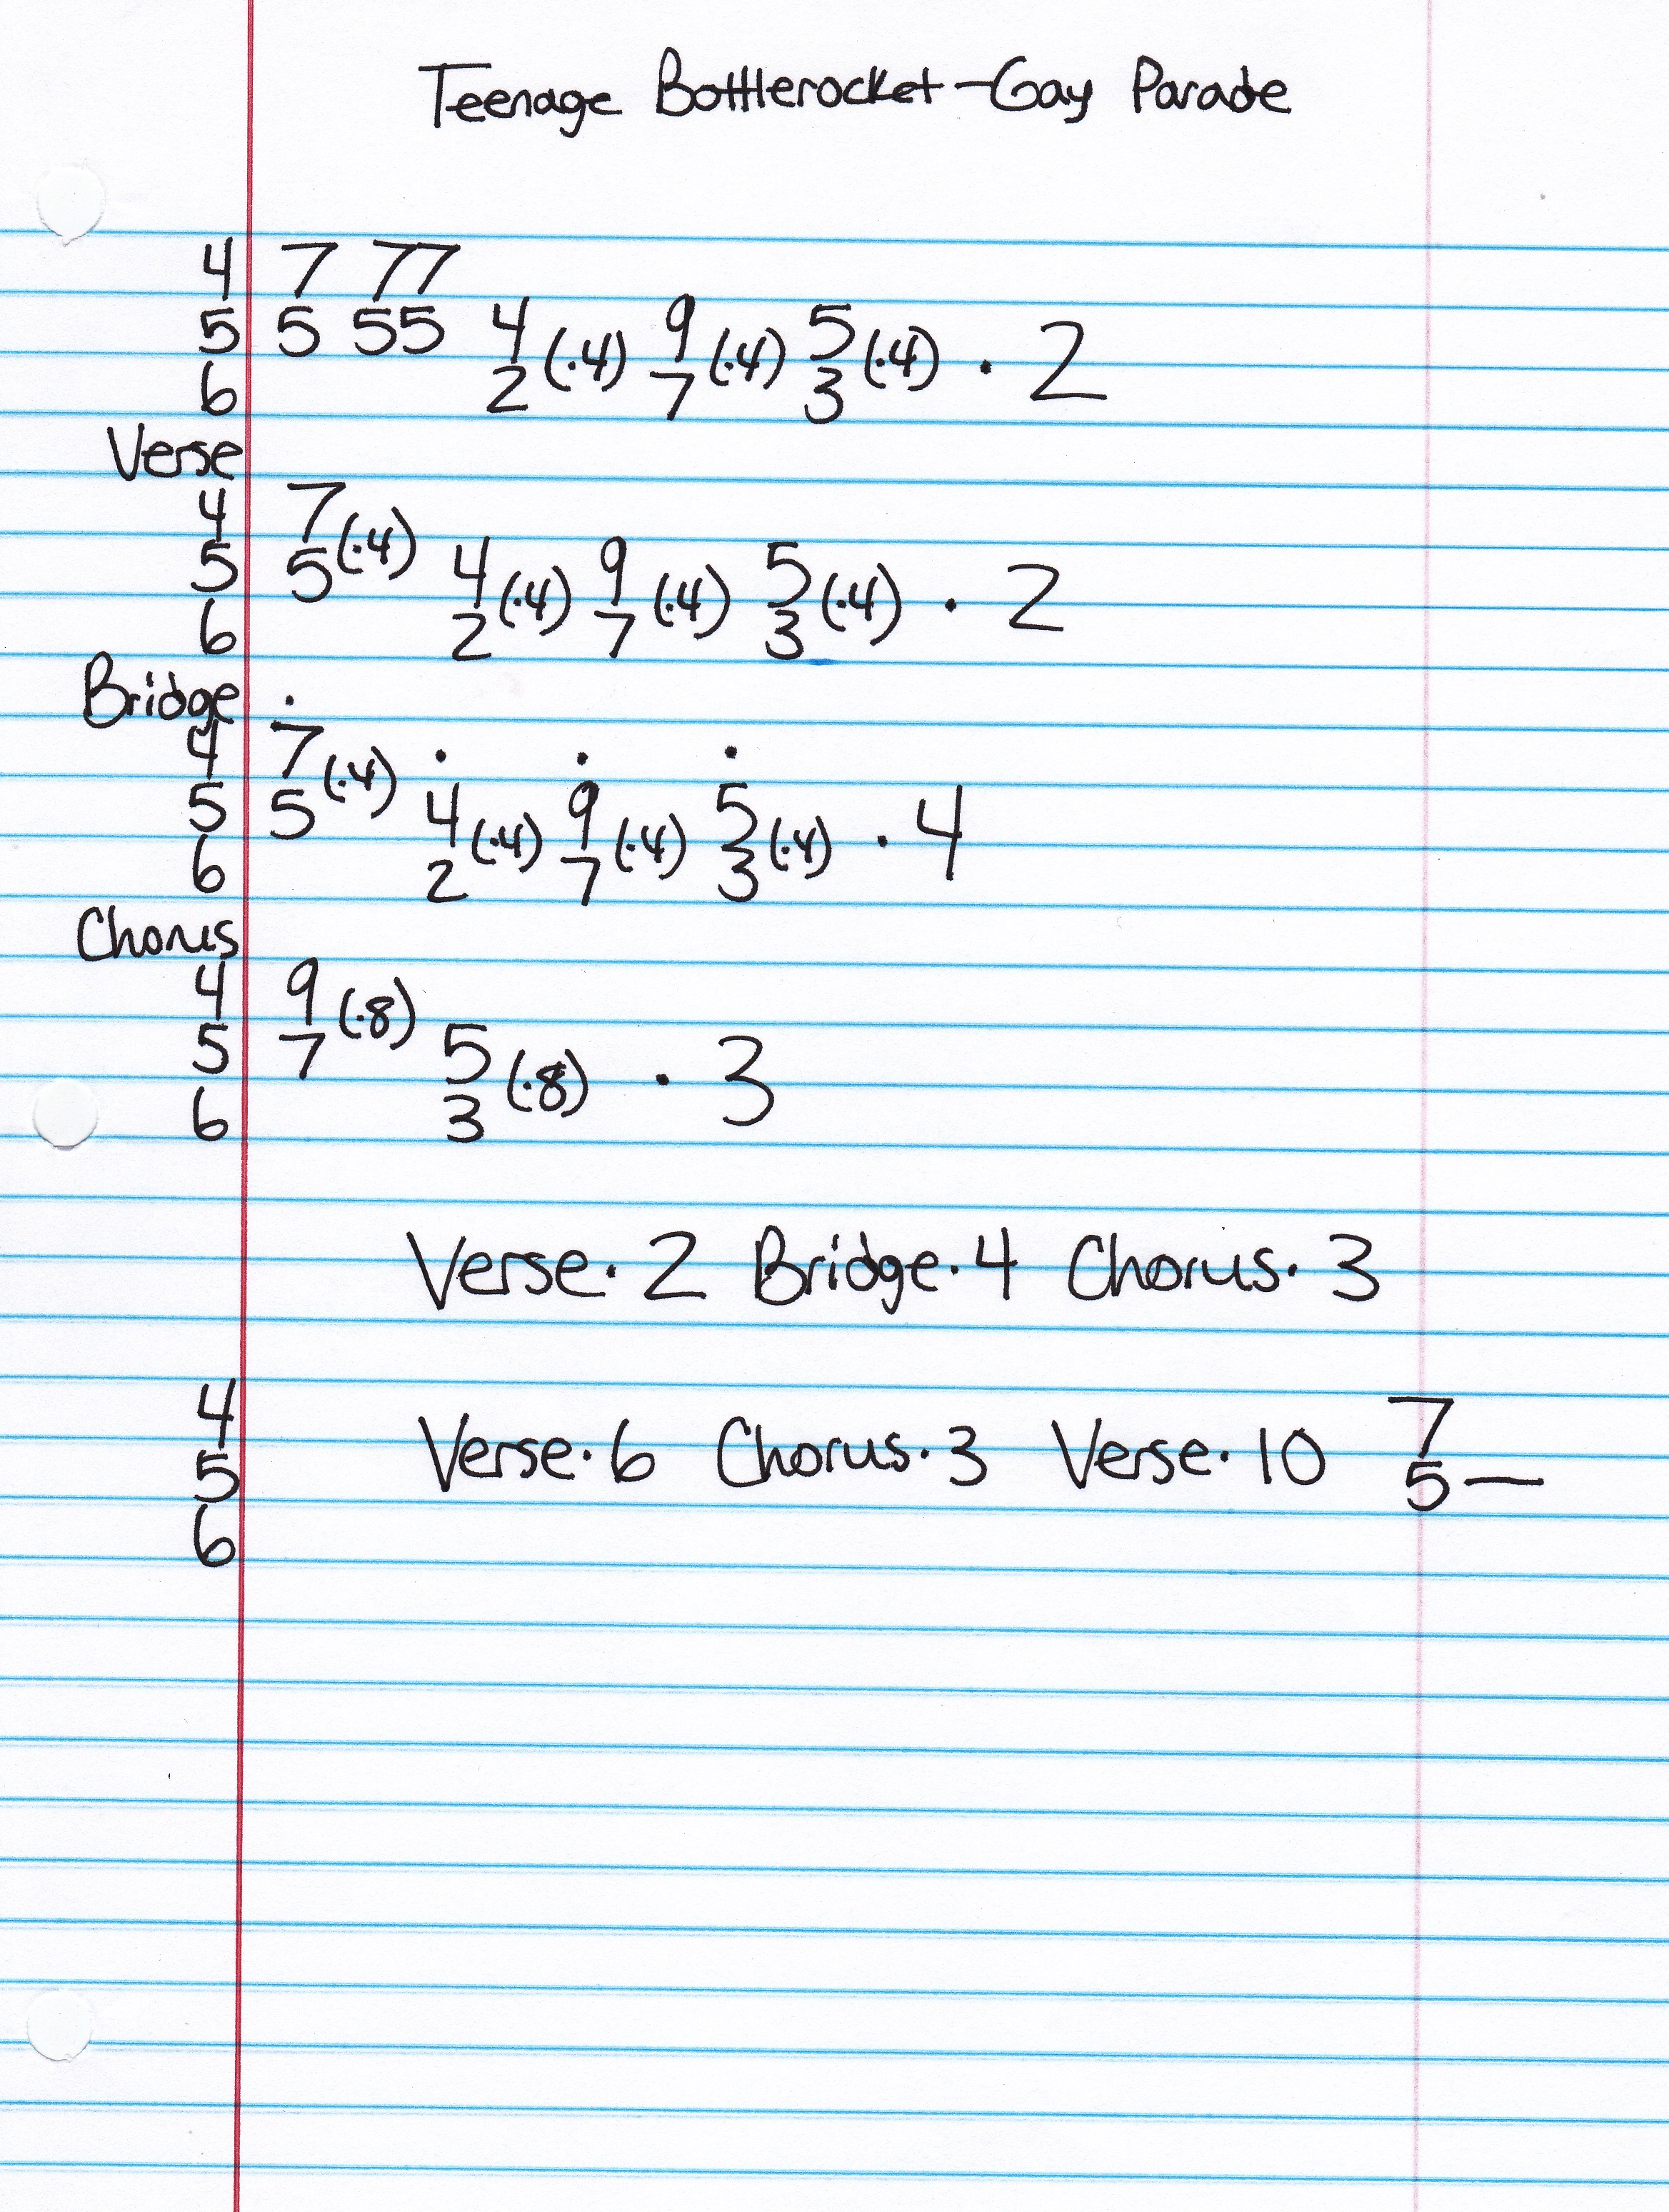 Teenage Bottlerocket-Gay Parade
4 7 77
5 5 55 4 9 5
(·4) (·4) (·4) · 2
6 2 7 3
Verse
4 7
(·4)
5 5 4 9 5
(·4) (·4) (·4) · 2
6 2 7 3
Bridge ·
4 7 · · ·
(·4)
5 5 4 9 5
(·4) (·4) (·4) · 4
6 2 7 3
Chorus
4 9
(·8)
5 7 5
(·8) · 3
6 3
Verse·2 Bridge·4 Chorus·3
4 7
Verse·6 Chorus·3 Verse·10
5 5—
6